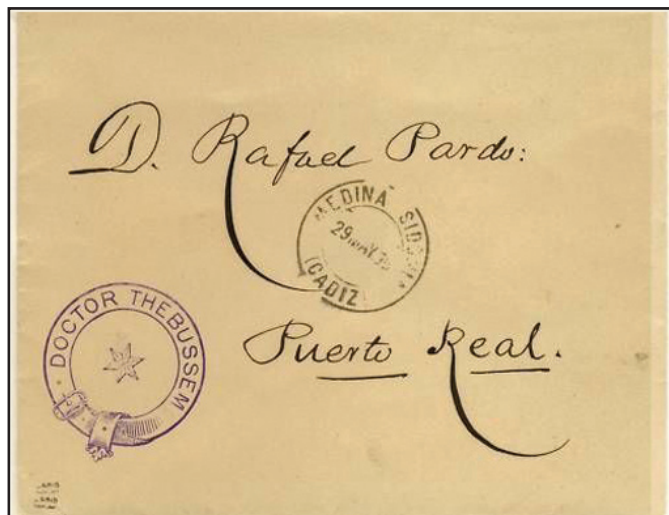 D. Rafael Pardo:
MEDINA SIDONIA
(CADIZ)
DOCTOR THEBUSSEM
Puerto Real.